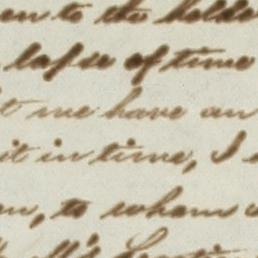 en to the holde
lapse of time
t me have an
it in time, I
on, to whom